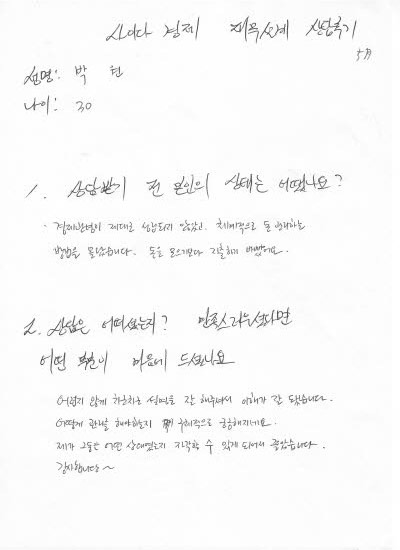 사이다 경제 재무설계 상담후기
5月
성명: 박 현
나이: 30
1. 상담받기 전 본인의 상태는 어땠나요?
· 경제관념이 제대로 성립되지 않았고, 체계적으로 돈 관리하는
방법을 몰랐습니다. 돈을 모으기보다 지출하기 바빴어요.
2. 상담은 어떠셨는지? 만족스러우셨다면
어떤 부분이 마음에 드셨나요
어렵지 않게 차근차근 설명을 잘 해주셔서 이해가 잘 됐습니다.
어떻게 관리를 해야하는지 구체적으로 궁금해지네요.
제가 그동안 어떤 상태였는지 자각할 수 있게 되어서 좋았습니다.
감사합니다~